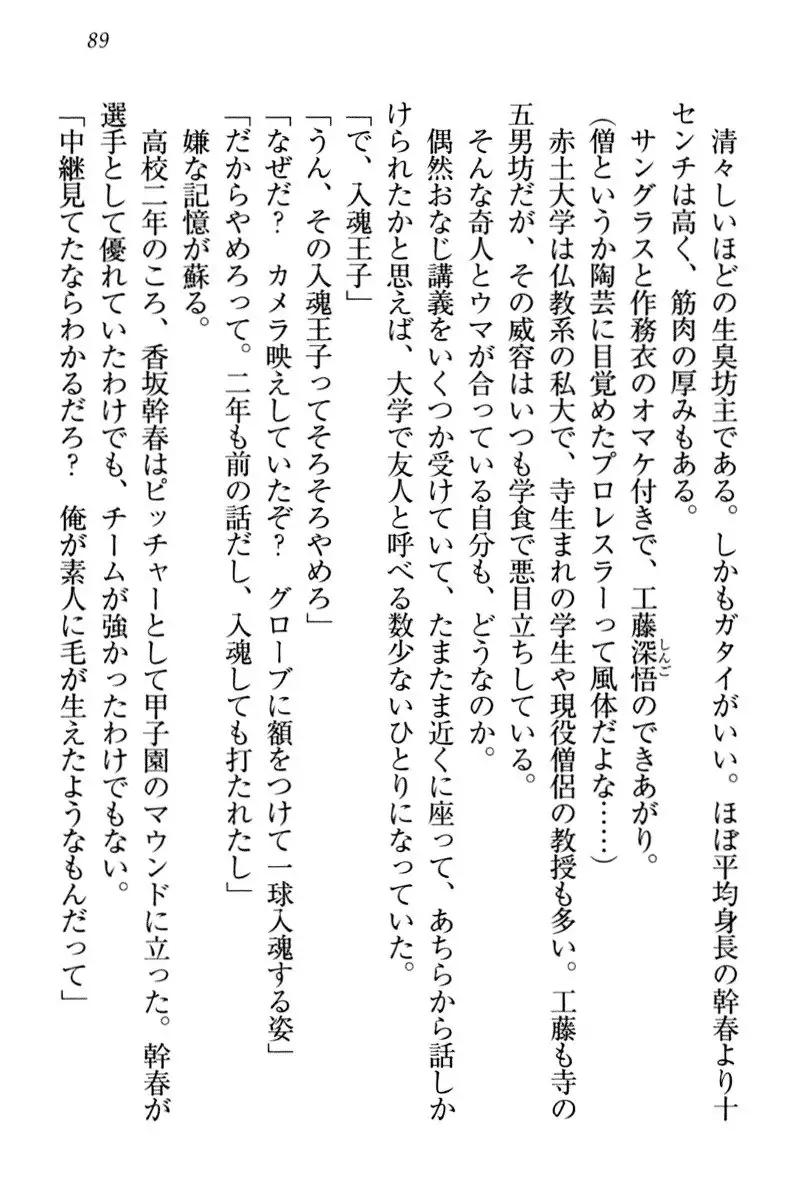 89
清々しいほどの生臭坊主である。しかもガタイがいい。ほぼ平均身長の幹春より十
センチは高く、筋肉の厚みもある。
サングラスと作務衣のオマケ付きで、工藤深悟のできあがり。
しんご
(僧というか陶芸に目覚めたプロレスラーって風体だよな……)
赤土大学は仏教系の私大で、寺生まれの学生や現役僧侶の教授も多い。工藤も寺の
五男坊だが、その威容はいつも学食で悪目立ちしている。
そんな奇人とウマが合っている自分も、どうなのか。
偶然おなじ講義をいくつか受けていて、たまたま近くに座って、あちらから話しか
けられたかと思えば、大学で友人と呼べる数少ないひとりになっていた。
「で、入魂王子」
「うん、その入魂王子ってそろそろやめろ」
「なぜだ？　カメラ映えしていたぞ？　グローブに額をつけて一球入魂する姿」
「だからやめろって。二年も前の話だし、入魂しても打たれたし」
嫌な記憶が蘇る。
高校二年のころ、香坂幹春はピッチャーとして甲子園のマウンドに立った。幹春が
選手として優れていたわけでも、チームが強かったわけでもない。
「中継見てたならわかるだろ？　俺が素人に毛が生えたようなもんだって」